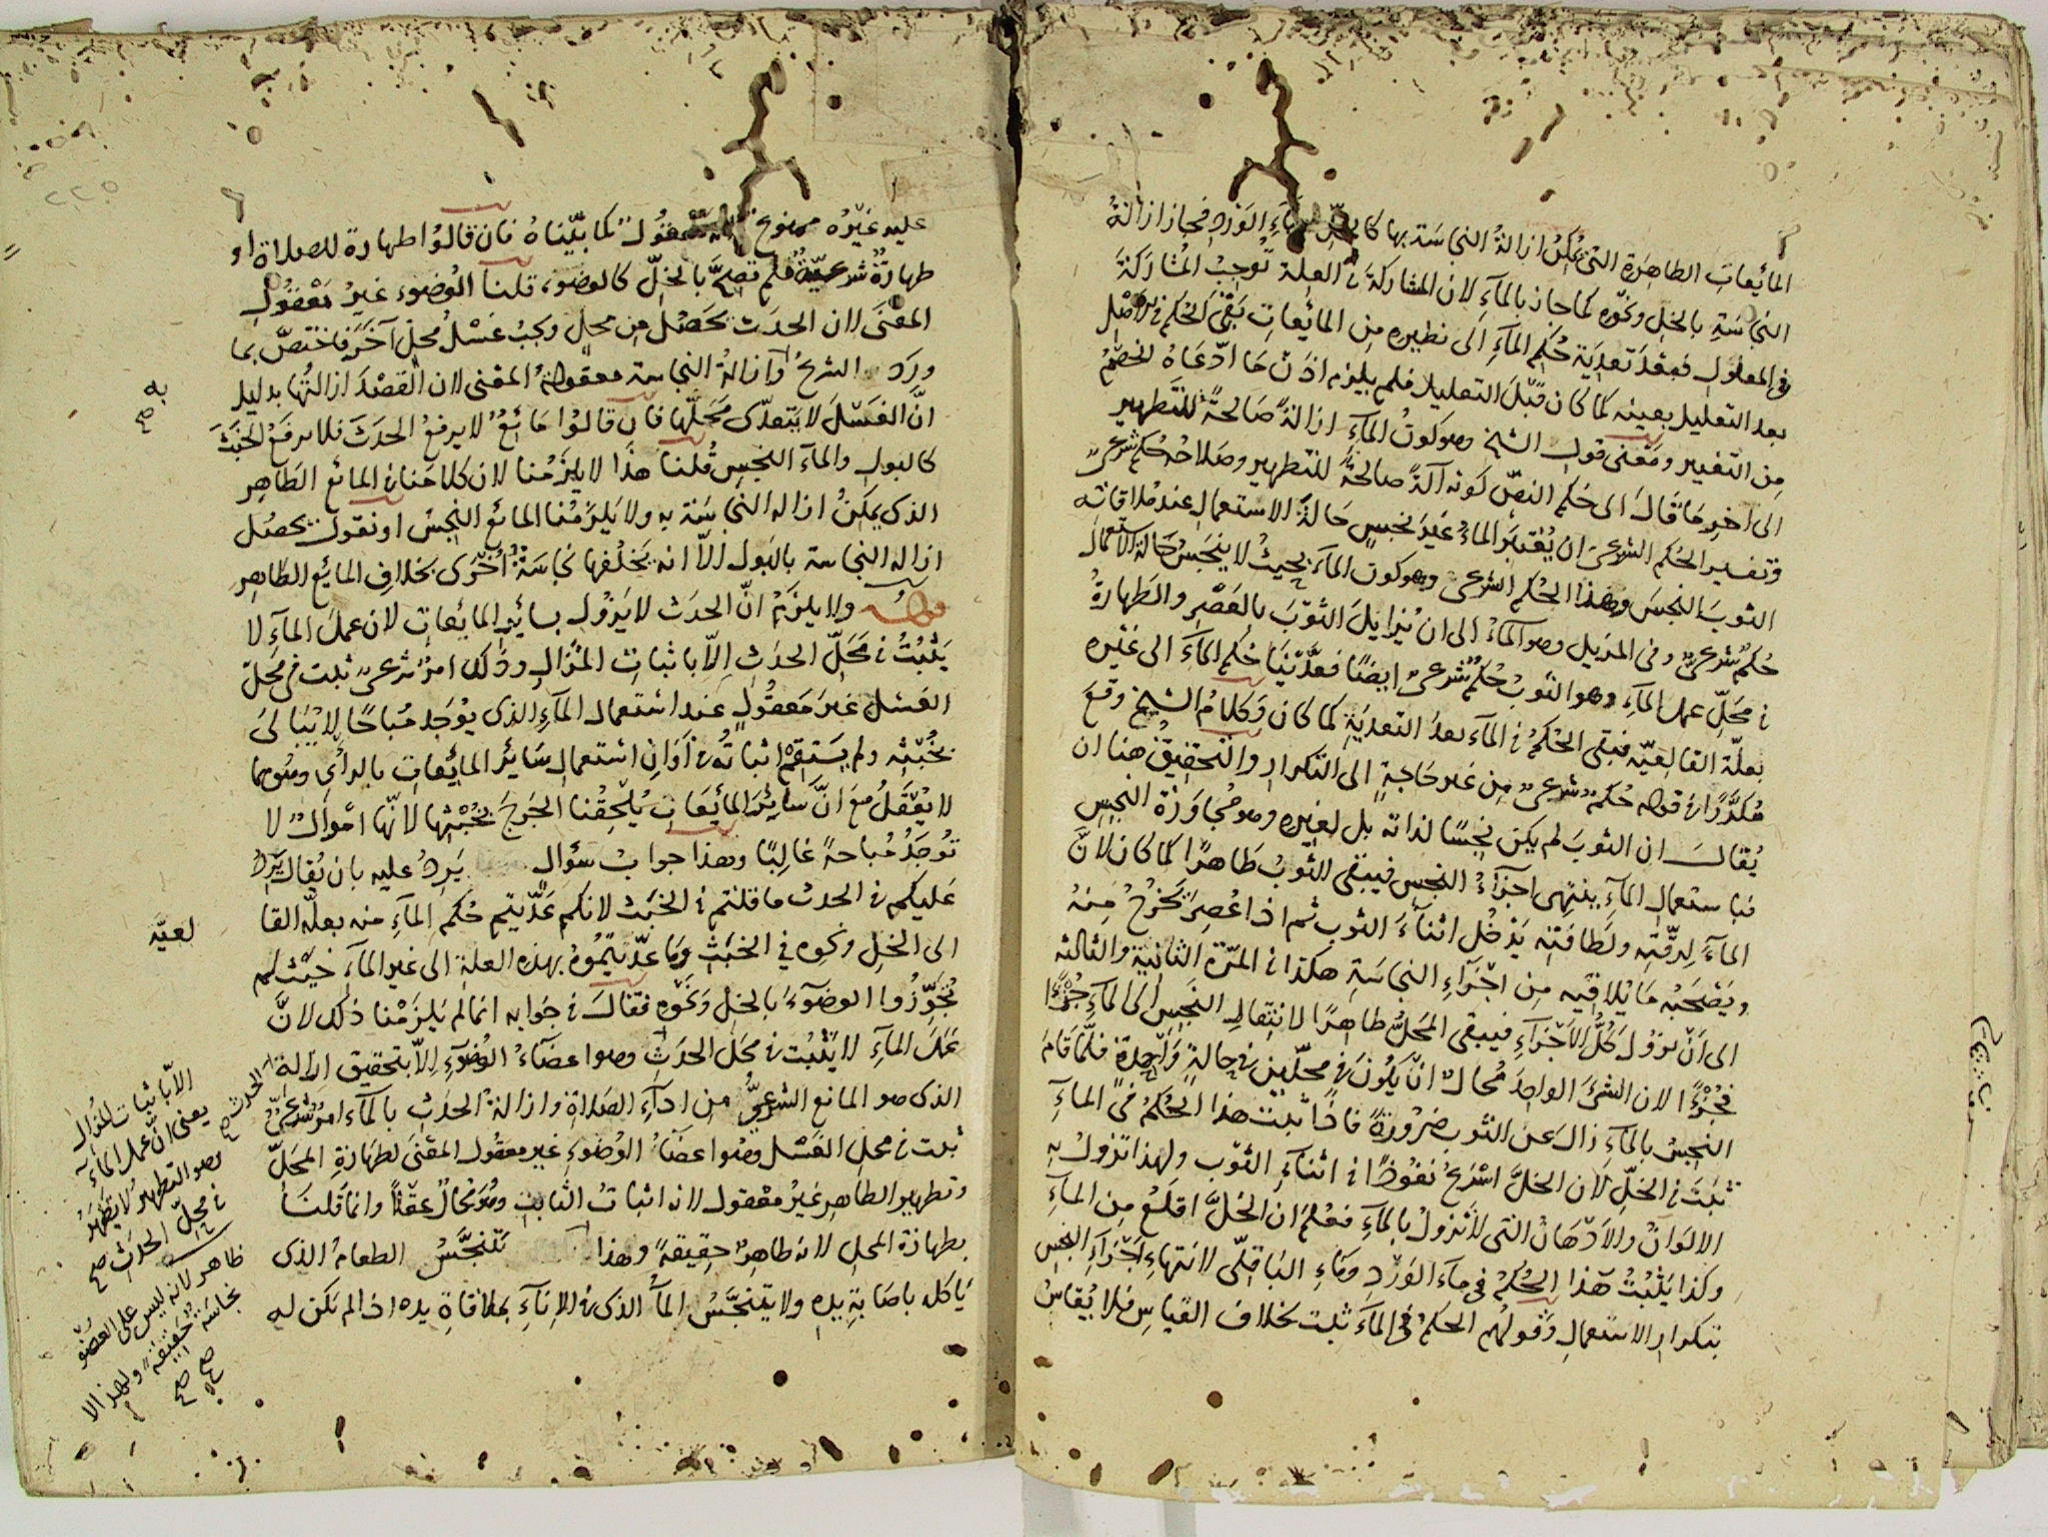 المائعات الطاهرة التى يمكن ازالة النجاسة بها كا الورد فجاز ازالة
النجاسة بالخل ونحوه كما جاز بالمآء لان المشاركة فى العلة توجب المشاركة
فى المعلول فبعد تعدية حكم المآء الى نظيره من المائعات بقى الحكم فى الاصل
بعد التعليل بعينه كما كان قبل التعليل فلم يلزم اذن ما ادّعاه الخصم
من التغيير ومعنى قول الشيخ وهو كون المآء ازالةً صالحةً للتطهير
الى آخر ما قال الى حكم النص كونه آلةً صالحةً للتطهير وصلاحه حكم شرعىّ
وتفسير الحكم الشرعى ان يعتبر الماء غير نجس حالة الاستعمال عند ملاقاته
الثوب النجس وهذا الحكم الشرعى وهو كون المآء بحيث لا ينجس حالة الاستعمال
حكم شرعىّ وفى المزيل وهو المآء الى ان يزايل الثوب بالعصر والطهارة
فى محلّ عمل المآء وهو الثوب حكم شرعىّ ايضًا فعدّينا حكم المآء الى غيره
بعلّة القالعيّة فبقى الحكم فى المآء بعد التعدية كما كان وكلام الشيخ وقع
مكرّرًا فى قوله حكم شرعىّ من غير حاجة الى التكرار والتحقيق هنا ان
يقال ان الثوب لم يكن نجسًا لذاته بل لغيره وهو مجاورة النجس
فباستعمال المآء ينتهى اجزآء النجس فيبقى الثوب طاهرًا كما كان لانّ
المآء لرقّته ولطافته يدخل اثناء الثوب ثم اذا عصر يخرج منه
ويصحبه ما يلاقيه من اجزآء النجاسة هكذا فى المرّة الثانية والثالثه
الى ان يزول كلّ الاجزآء فيبقى المحلّ طاهرًا لانتقال النجس الى المآء جزءًا
فجزءًا لان الشئ الواحد محال ان يكون فى محلّين فى حالة واحدة فلمّا قام
النجس بالمآء زال عن الثوب ضرورةً فاذا ثبت هذا الحكم فى المآء
ثبت فى الخلّ لان الخلّ اسرع نفوضًا فى اثناء الثوب ولهذا تزول به
الالوان والادهان التى لا تزول بالمآء فعلم ان الخلّ اقلع من المآء
وكذا يثبت هذا الحكم فى مآء الورد ومآء الباقلّى لانتهاء اجزآء النجس
بتكرار الاستعمال وقولهم الحكم فى المآء ثبت بخلاف القياس فلا يقاس
عليه غيره ممنوع معقول كما بيّناه فان قالوا طهارة للصلاة او
طهارة شرعيّة فلم تصحّ بالخلّ كالوضوء قلنا الوضوء غير معقول
المعنى لان الحدث يحصل من محل وجب غسل محل آخر فاختص بما
ورد الشرع وازالة النجاسة معقولة المعنى لان القصد ازالتها بدليل
به صح
انّ الغسل لا يتعدّى محلّها فان قالوا مائع لا يرفع الحدث فلا يرفع الخبث
كالبول والمآء النجس قلنا هذا لا يلزمنا لان كلامنا فى المائع الطاهر
الذى يمكن ازالة النجاسة به ولا يلزمنا المائع النجس او نقول يحصل
ازالة النجاسة بالبول الّا انه يخلفها نجاسة اخرى بخلاف المائع الطاهر
قوله ولا يلزم انّ الحدث لا يزول بسائر المائعات لان عمل المآء لا
يثبت فى محلّ الحدث الّا باثبات المزال وذلك امر شرعىّ ثبت فى محلّ
الغسل غير معقول عند استعمال المآء الذى يوجد مباحًا لا يبالى
بخبثه ولم يستقم اثباته فى اوان استعمال سائر المائعات بالرأى وهو مما
لا يعقل مع انّ سائر المائعات يلحقنا الحرج بخبثها لانّها اموال لا
توجد مباحةً غالبًا وهذا جواب سؤال يرد عليه بان يقال يرد
عليكم فى الحدث ما قلتم فى الخبث لانكم عدّيتم حكم المآء منه بعلّة القا
لعيّه
الى الخل ونحوه فى الخبث وما عدّيتموه بهذه العلة الى غير المآء حيث لم
تجوّزوا الوضوء بالخل ونحوه فقال فى جوابه انما لم يلزمنا ذلك لانّ
عمل المآء لا يثبت فى محل الحدث وهو اعضاء الوضوء الّا بتحقيق ازالة
الحدث صح
الذى هو المانع الشرعىّ من ادآء الصلاة وازالة الحدث بالمآء امر شرعىّ
ثبت فى محل الغسل وهو اعضاء الوضوء غير معقول المعنى لطهارة المحلّ
وتطهير الطاهر غير معقول لانه اثبات الثابت وهو محال عقلًا وانما قلنا
بطهارة المحل لانه طاهر حقيقةً وهذا تتنجّس الطعام الذى
ياكله باصابة يده ولا يتنجّس المآء الذى فى الانآء بملاقاة يده اذا لم تكن له
الاّ باثبات المزال
يعنى انّ عمل المآء
وهو التطهير لا يظهر
فى محلّ الحدث صح
ظاهر لانه ليس على العضو
نجاسة حقيقة ولهذا لا
صح صح